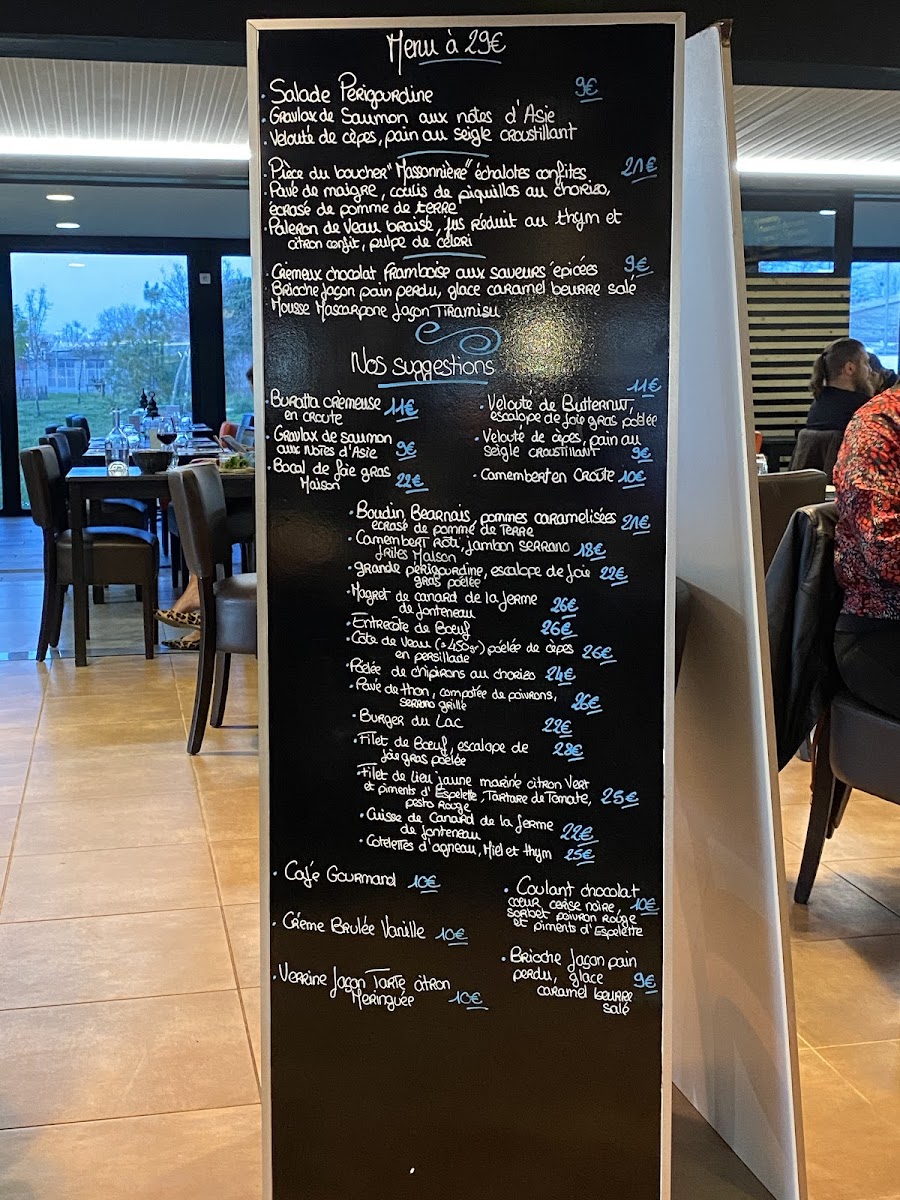 Menu à 29€
· Salade Périgourdine 9€
· Gravlax de Saumon aux notes d'Asie
· Velouté de cèpes, pain au seigle croustillant
· Pièce du boucher "Massonnière" échalotes confites 21€
· Pavé de maigre, coulis de piquillos au chorizo,
écrasé de pomme de terre
· Paleron de veau braisé, jus réduit au thym et
citron confit, pulpe de céleri
· Crèmeux chocolat framboise aux saveurs épicées 9€
· Brioche façon pain perdu, glace caramel beurre salé
· Mousse Mascarpone façon Tiramisu
Nos suggestions
· Buratta crèmeuse
en croute 11€
· Gravlax de saumon
aux notes d'Asie 9€
· Bocal de foie gras
Maison 22€
11€
· Velouté de Butternut,
escalope de foie gras poêlée
· Velouté de cèpes, pain au
seigle croustillant 9€
· Camembert en Croûte 10€
· Boudin Bearnais, pommes caramelisées
écrasé de pomme de Terre 21€
· Camembert Rôti, jambon serrano
frites Maison 18€
· grande périgourdine, escalope de foie
gras poêlée 22€
· Magret de canard de la ferme
de fonteneau 26€
· Entrecôte de Bœuf 26€
· Côte de Veau (≈450gr) poêlée de cèpes
en persillade 26€
· Poêlée de chipirons au chorizo 24€
· Pavé de thon, compotée de poivrons,
serrano grillé 26€
· Burger du Lac 22€
· Filet de Bœuf, escalope de
foie gras poêlée 28€
· Filet de lieu jaune mariné citron Vert
et piments d'Espelette, Tartare de Tomate,
pesto Rouge 25€
· Cuisse de Canard de la ferme
de fonteneau 22€
· Cotelettes d'agneau, Miel et thym 25€
· Café Gourmand 10€
· Crème Brulée Vanille 10€
· Verrine façon Tarte citron
Meringuée 10€
· Coulant chocolat
cœur cerise noire, 10€
sorbet poivron rouge
et piments d'Espelette
· Brioche façon pain
perdu, glace 9€
caramel beurre
salé